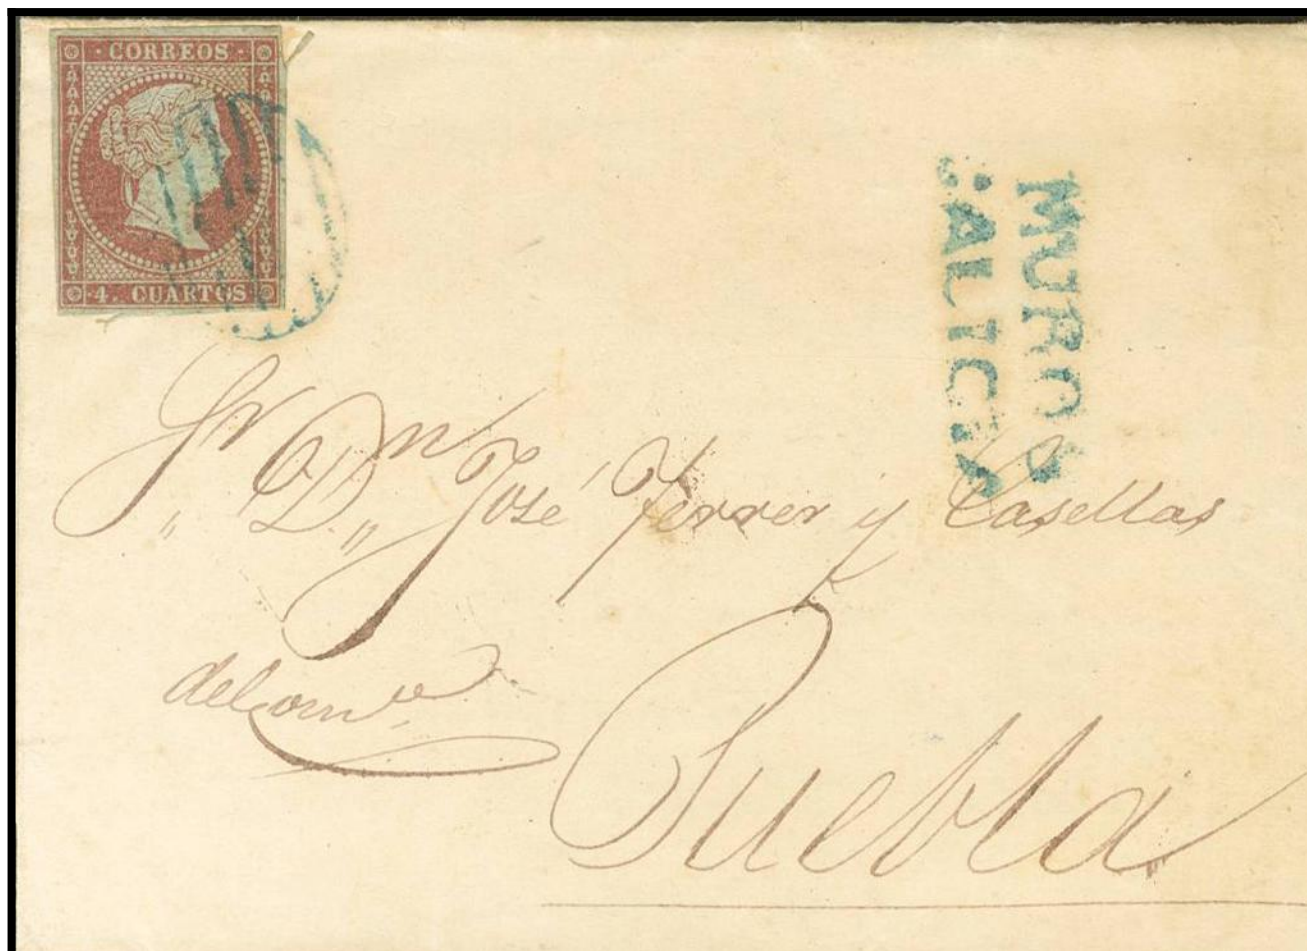 CORREOS
4. CUARTOS
MUROS
GALICIA
Sr. Dn José Ferrer y Casellas
del como.
Puebla